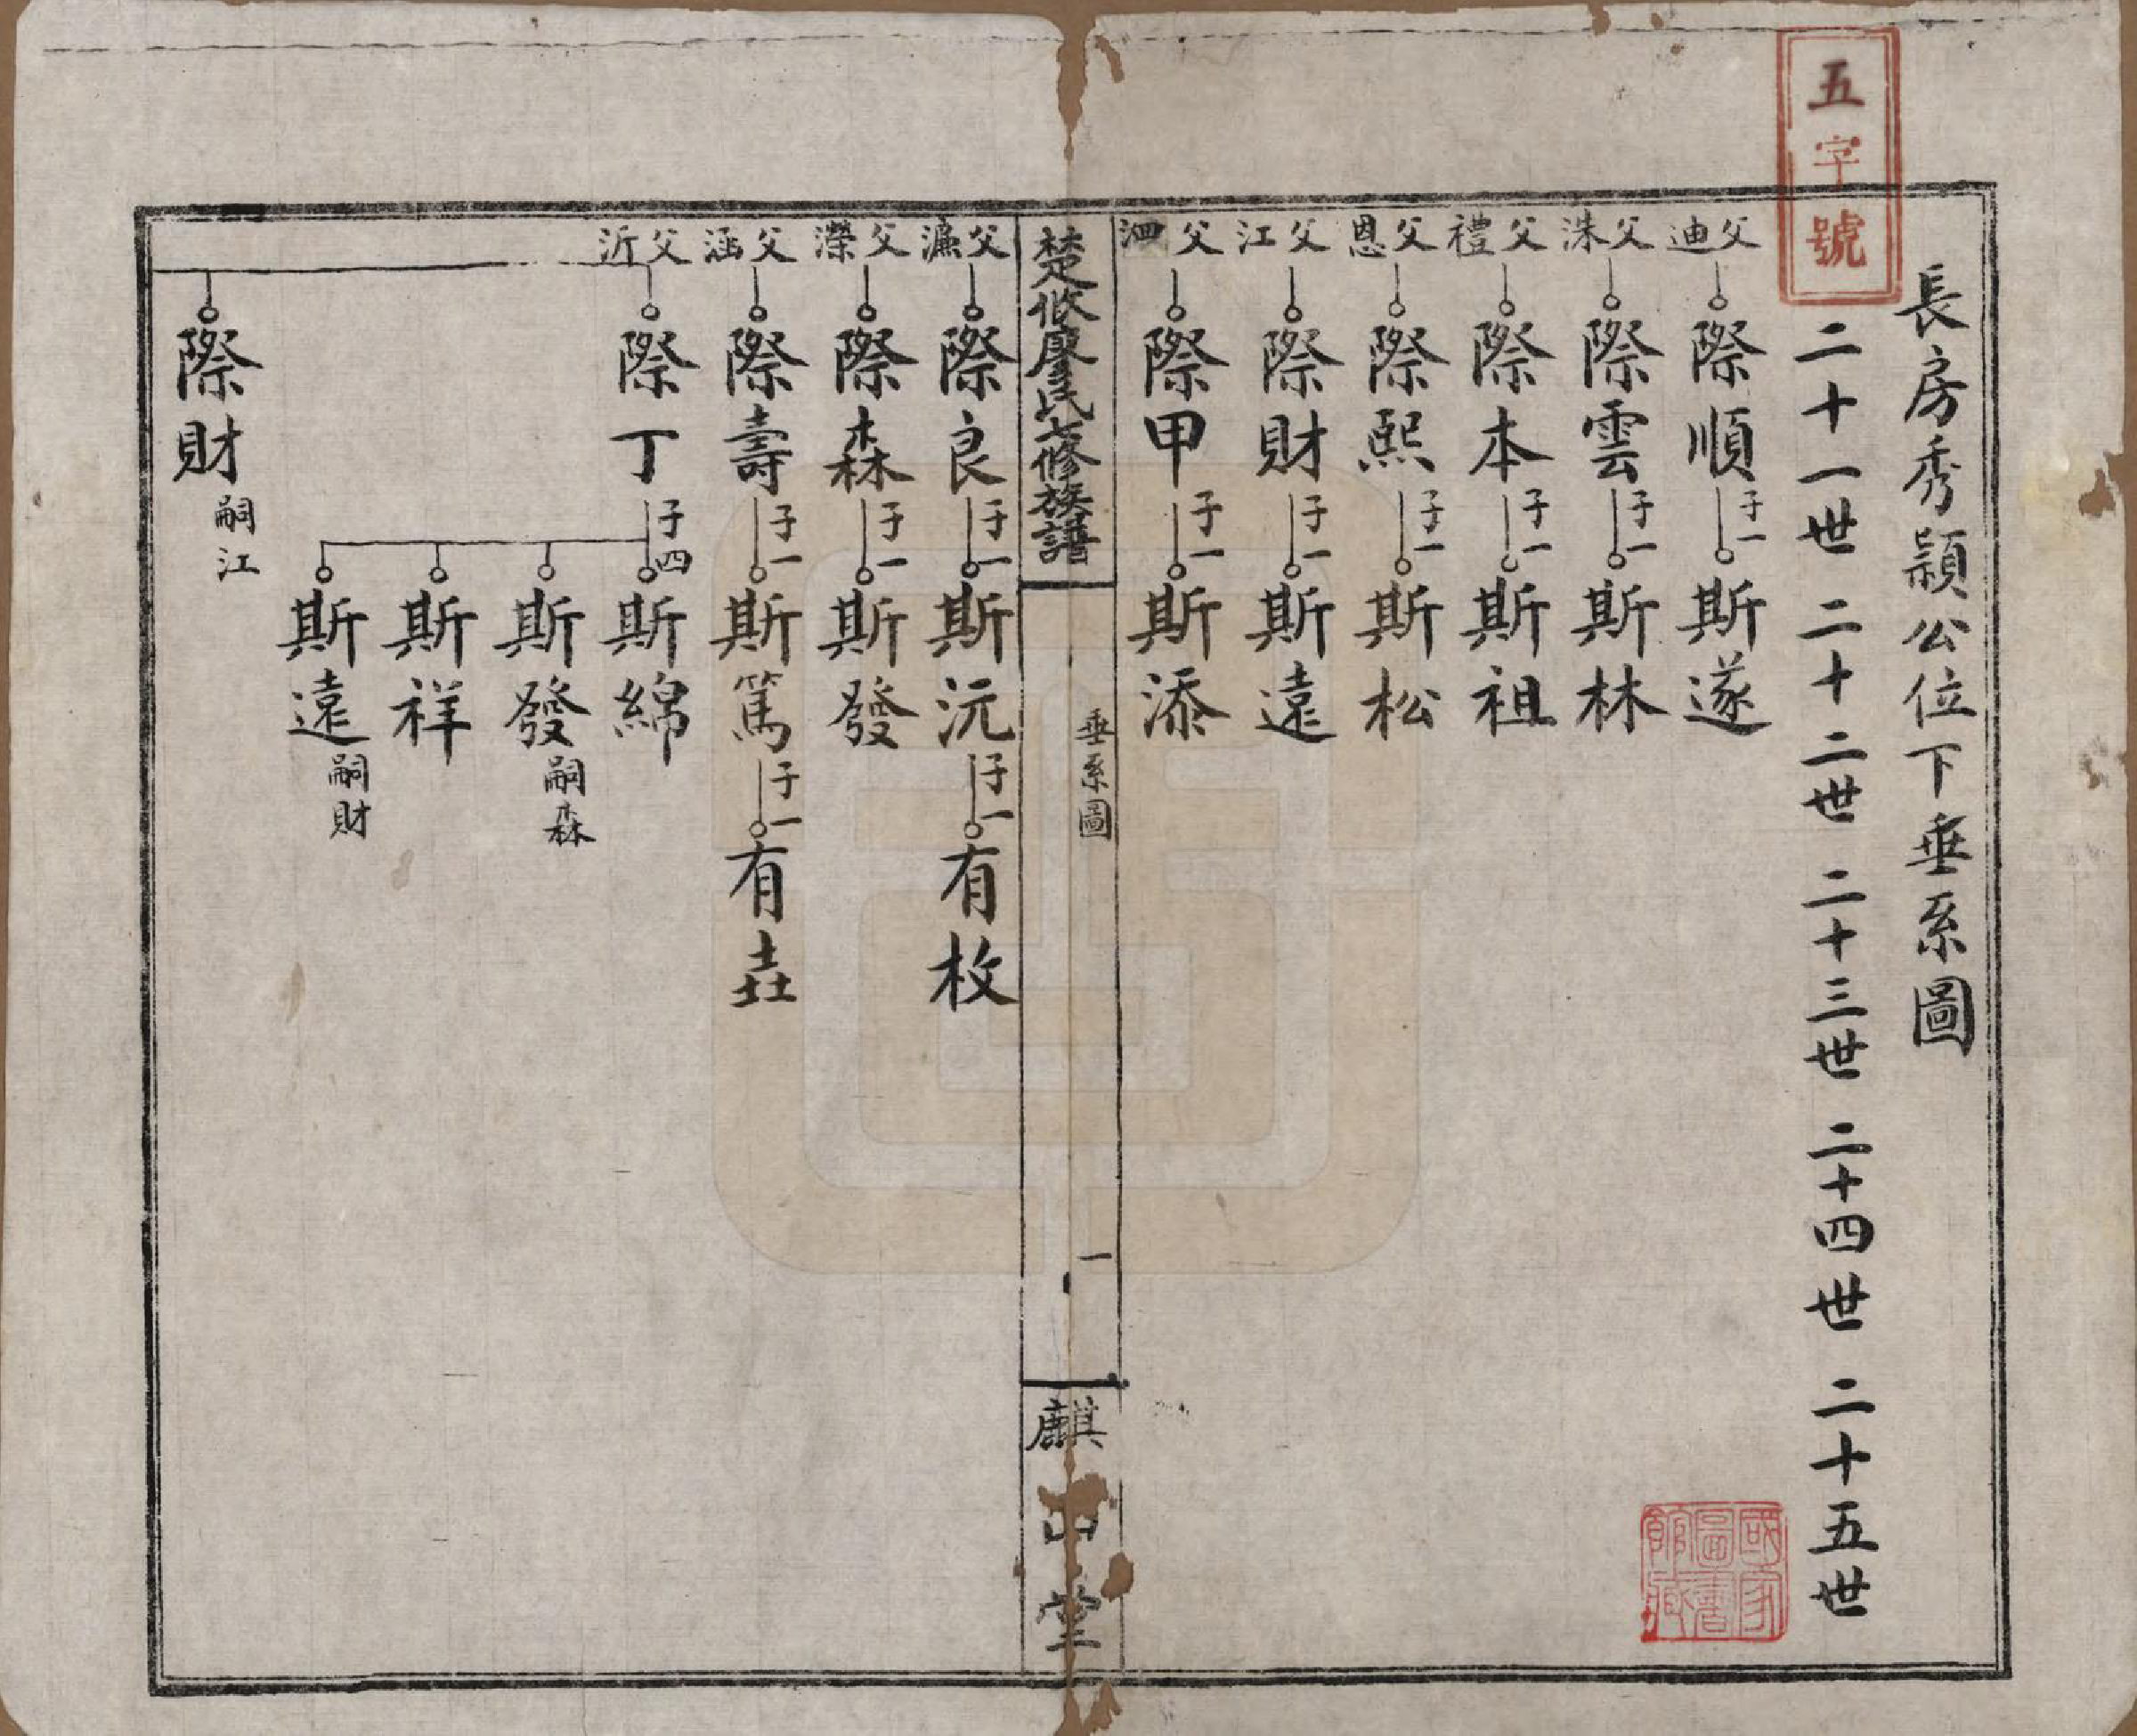 五字號
長房秀頴公位下垂系圖
二十一世 二十二世 二十三世 二十四世 二十五世
父迪 際順 子一 斯遂
父洙 際雲 子一 斯林
父禮 際本 子一 斯祖
父恩 際熙 子一 斯松
父江 際財 子一 斯遠
父泗 際甲 子一 斯添
國家圖書館藏
楚攸廖氏七修族譜
垂系圖
一
麒山堂
父濂 際良 子一 斯沅 子一 有枚
父濚 際森 子一 斯發
父涵 際壽 子一 斯篤 子一 有垚
父沂 際丁 子四 斯綿
斯發 嗣森
斯祥
斯遠 嗣財
際財 嗣江